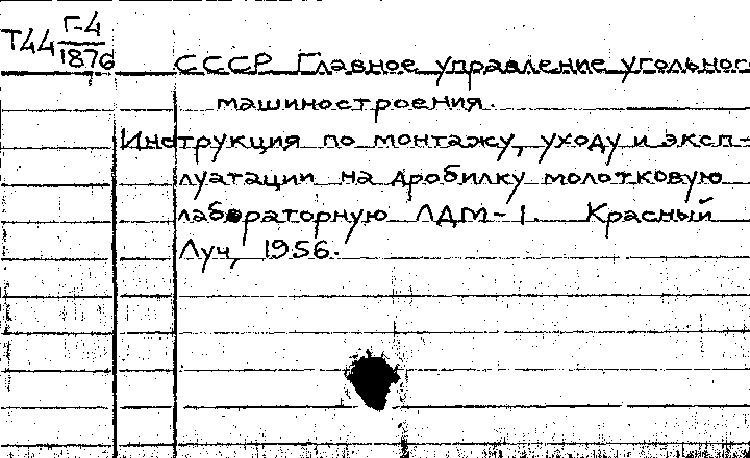 Т44 Г-4
1876
СССР Главное управление угольног
машиностроения.
Инструкция по монтажу, уходу и эксп-
луатации на дробилку молотковую
лабораторную ЛДМ-1. Красный
Луч, 1956.